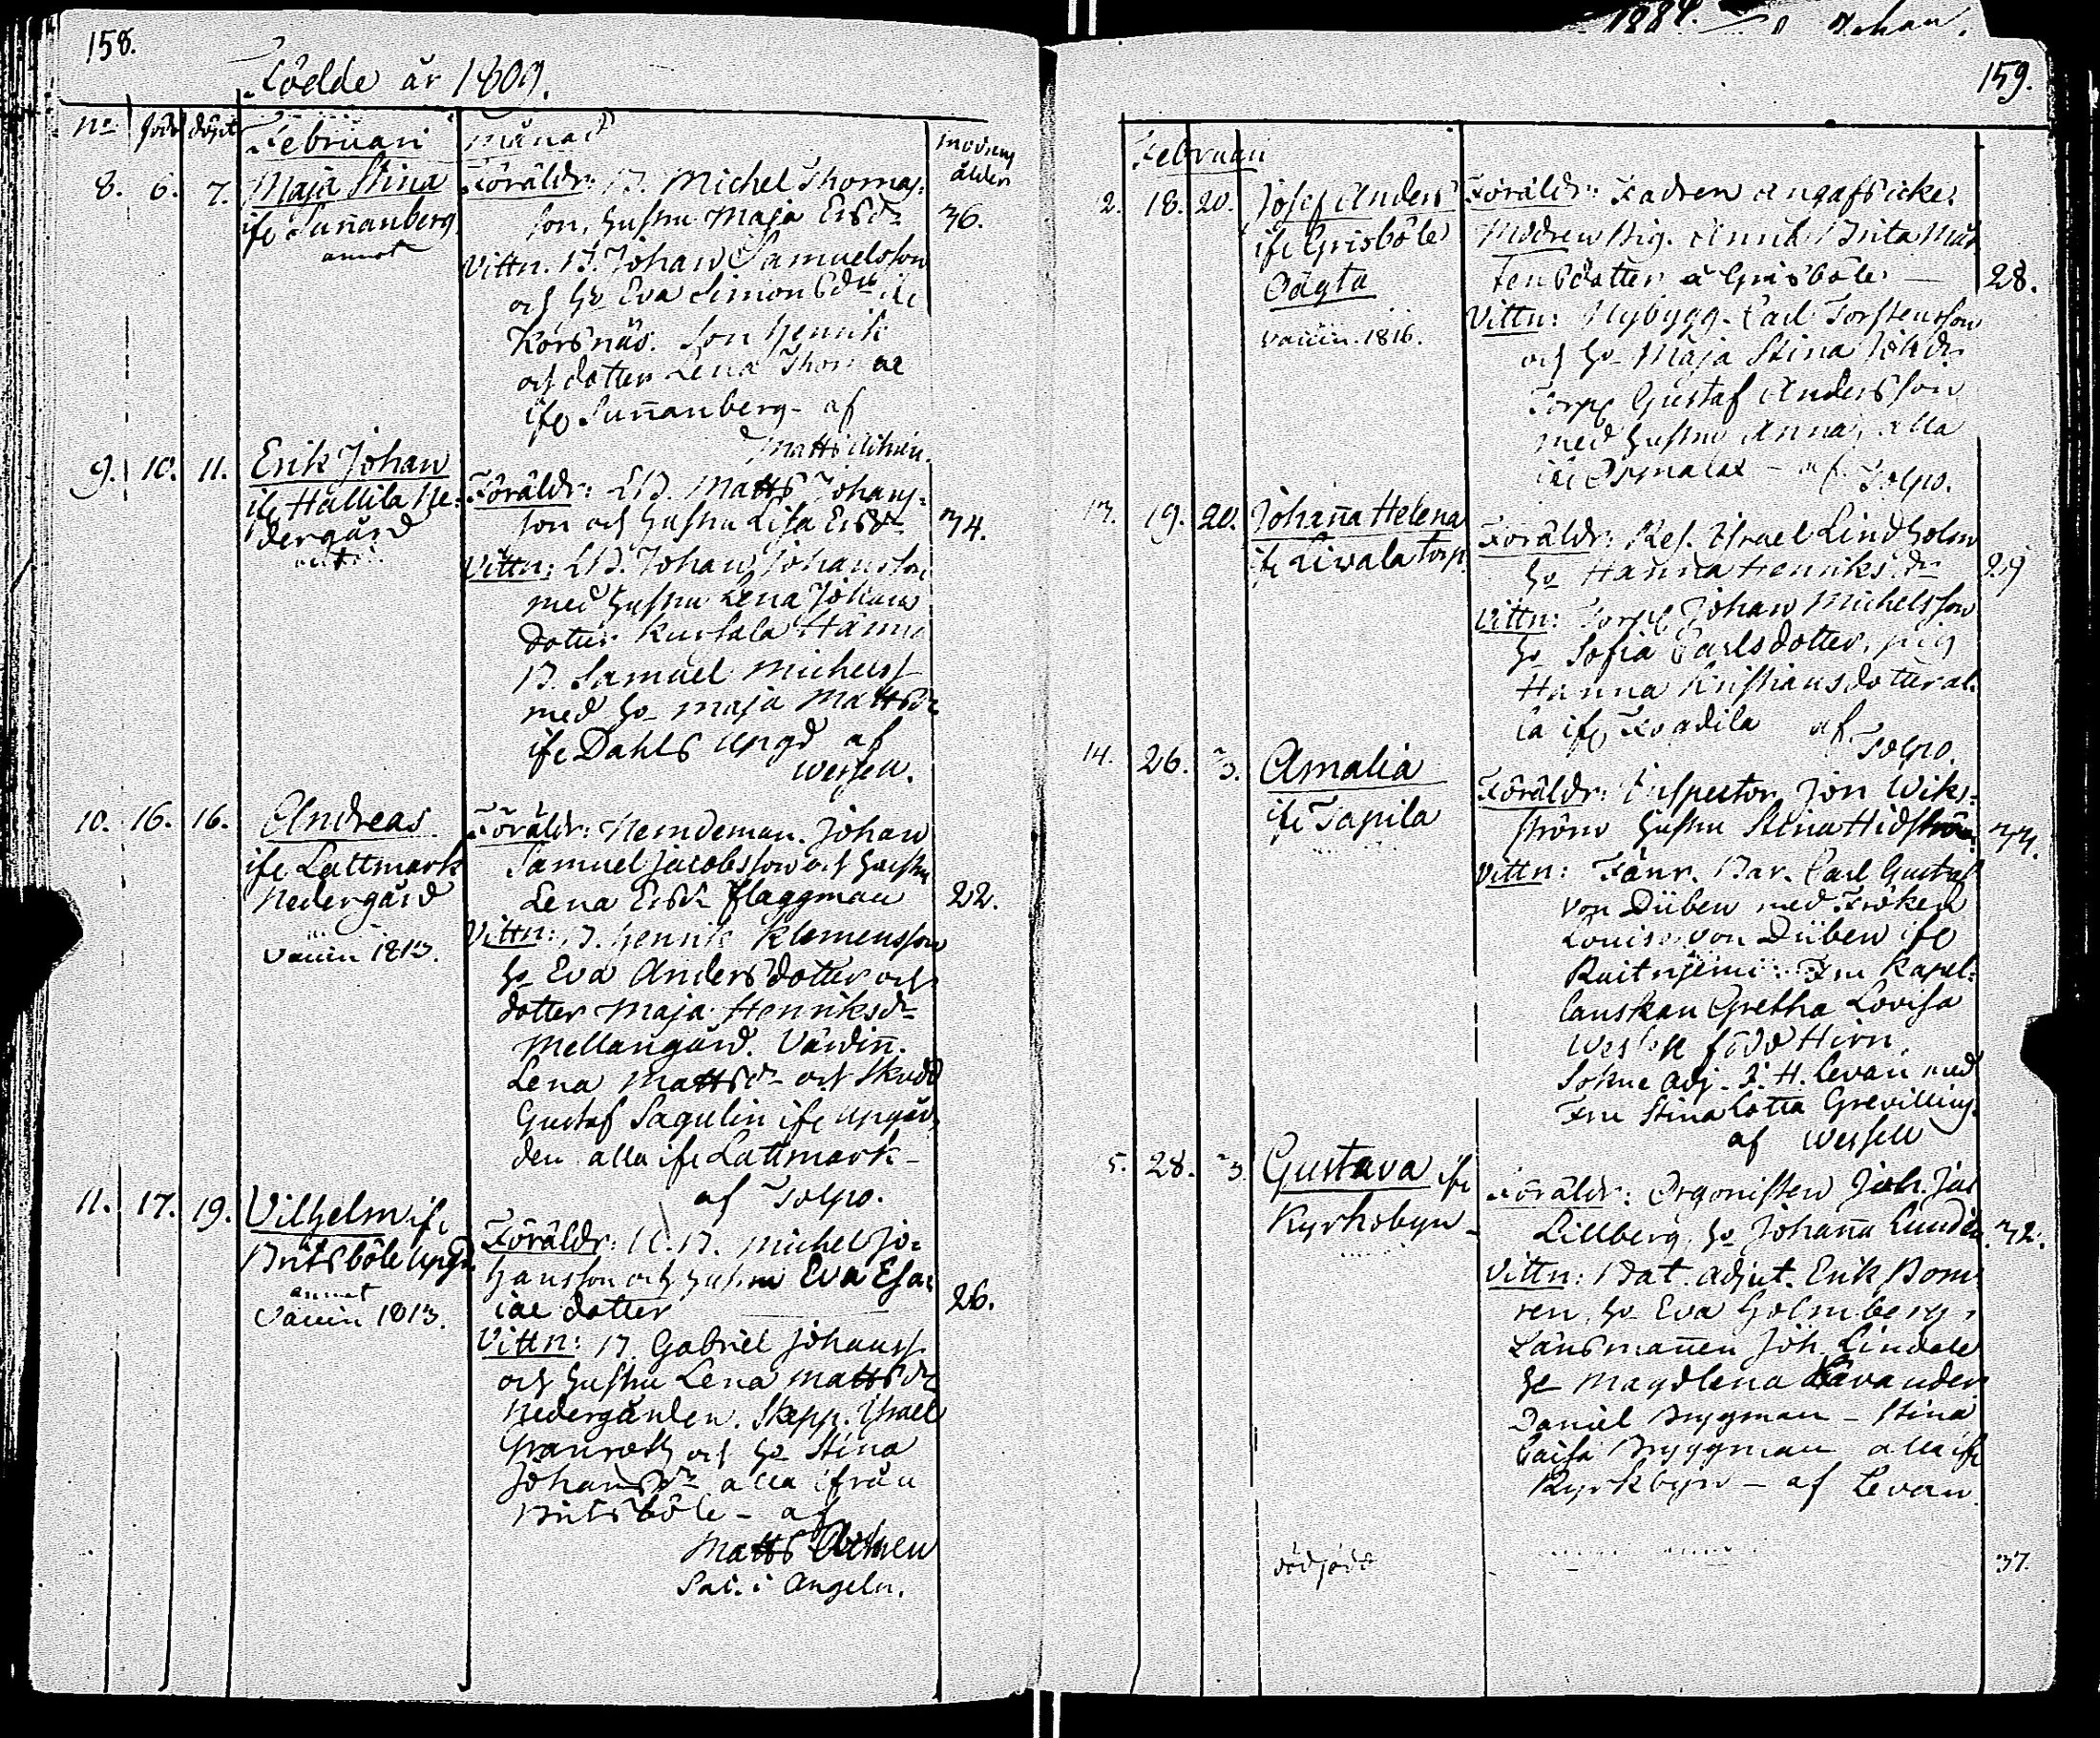 158.
Födde år 1809.
No född döpt Februari månad modrens ålder
8. 6. 7. Maja Stina
ifr Sunnanberg
annot
Föräldr: B. Michel Thomas:
son, hustru Maja Ersdr 36.
Vittn. B. Johan Samuelsson
och ho Eva Simonsdr ifr
Korsnäs. Son Henrik
och dotter Lena Thomae
ifr Sunnanberg - af
Matts
9. 10. 11. Erik Johan
ifr Hallila Ne:
dergård
Föräldr: LB. Matts Johans:
son och hustru Lisa Ersdr 34.
Vittn: LB. Johan Johansson
med hustru Lena Johans
dotter
B. Samuel Michelss
med ho Maja Mattsdr
ifr Dahls upgd af
Wessell.
10. 16. 16. Andreas
ifr Lattmark
Nedergård
vaccin 1813.
Föräldr: Nemdeman. Johan
Samuel Jacobsson och hustru
Lena Ersdr Flaggman 22.
Vittn: B. Henrik Klemensson
ho Eva Andersdotter och
dotter Maja Henriksdr
Mellangård. Värdinn.
Lena Mattsdr och Skudd
Gustaf Sagulin ifr upgår
den alla ifr Lattmark -
af Tolpo.
11. 17. 19. Vilhelm ifr
Britsböle upgd
annot
vaccin 1813.
Föräldr: U.B. Michel Jo:
hansson och hustru Eva Esa:
iae dotter 26.
Vittn: B. Gabriel Johanss
och hustru Lena Mattsdr
Nedergården. Skepp. Israel
Granroth och ho Stina
Johansdr alla ifrån
Britsböle - af
Matts
Sac. i Angeln.
1884. Johan.
159.
Februari
2. 18. 20. Josef Anders
ifr Grisböle
Oägta
vaccin. 1816.
Föräldr: Fadren angafs icke.
Modren Pig. Brita Mår
tensdotter å Grisböle 28.
Vittn: Nybygg. Carl Torstensson
och ho Maja Stina Johdr
Torp. Gustaf Andersson
med hustru Anna, alla
ifr - af Tolpo.
13. 19. 20. Johanna Helena
ifr Livala torp.
Föräldr: Ref. Israel Lindholm
ho Hanna Henriksdr 29
Vittn: Torp. Johan Michelsson
ho Sofia Carlsdotter, pig
Hanna Kristiansdotter al:
la ifr af Tolpo.
14. 26. 3. Amalia
ifr Tapila
Föräldr: Inspector Jon Wik:
ström hustru Stina Hidström 34.
Vittn: Fänr. Bar. Carl Gustaf
von Düben med Fröken
Louisa von Düben ifr
Fru Kapel:
lanskan Gretha Lovisa
Wessell född Hirn.
Sokne Adj. I. H. Levan med
Fru Stina Lotta Grevilling.
af Wessell
5. 28. 3 Gustava ifr
Kyrkobyn -
Föräldr: Organisten Joh. Jac
Lillberg, ho Johanna Lundén 32.
Vittn: Bat. Adjut. Erik Bom
ren, ho Eva Holmberg,
Länsmannen Joh. Lindale
ho Magdlena Lavander
Daniel Bryggman - Stina
Caisa Bryggman alla ifr
Kyrkbyn - af Levan
dödfödt 37.